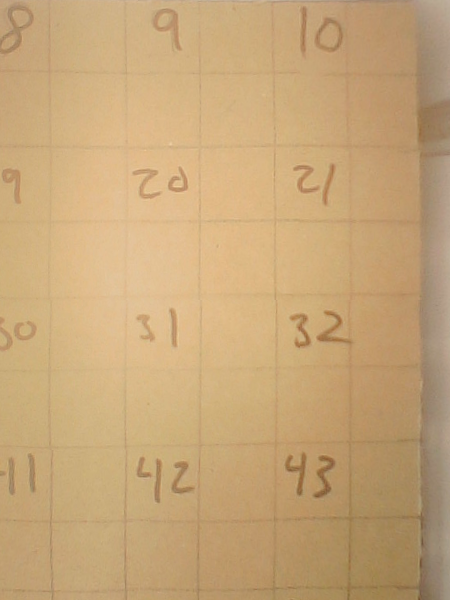 8 9 10
9 20 21
30 31 32
41 42 43